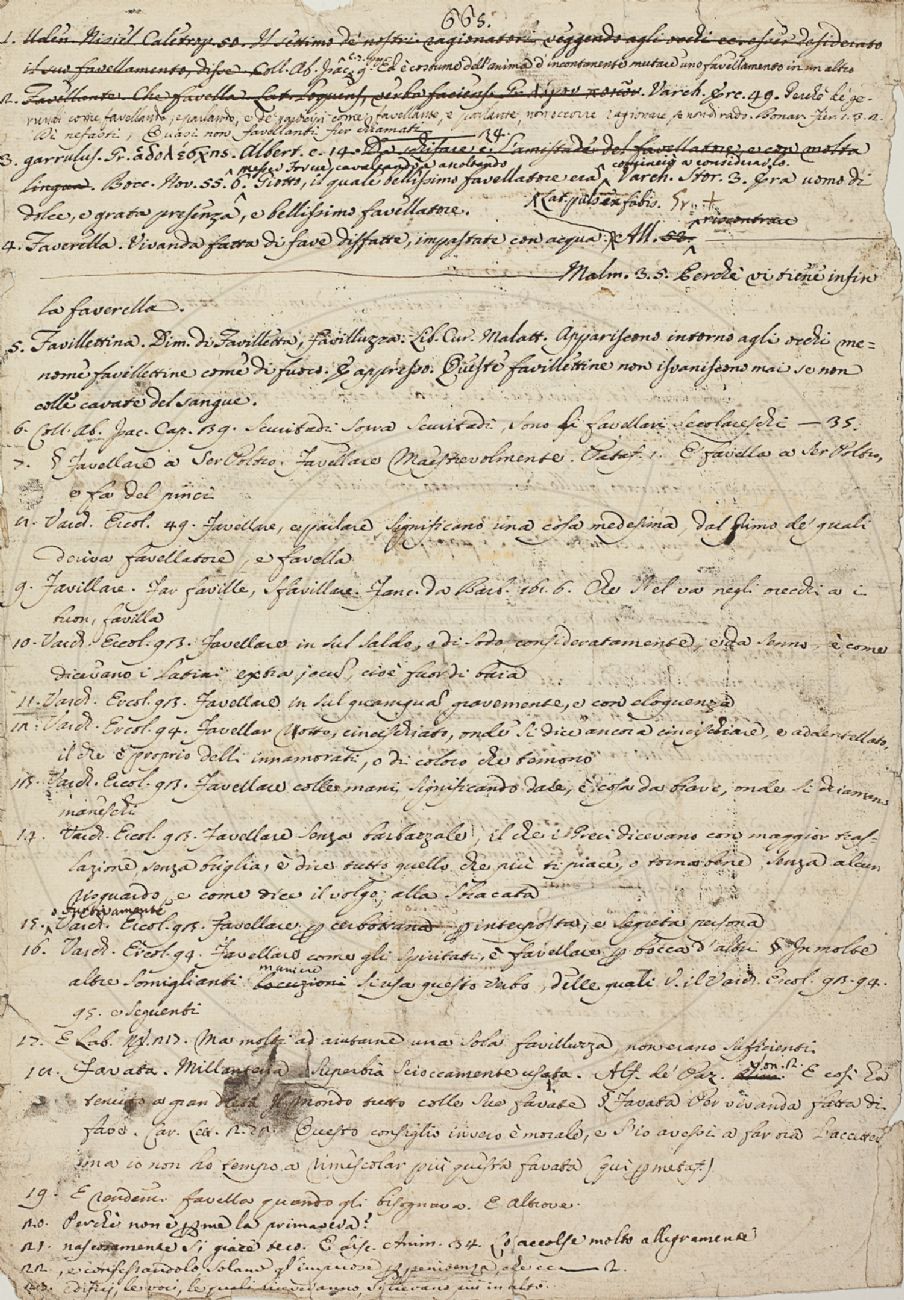 668.
1. Uden. Nisiel Caletrop. 50. Il settimo de' nostri ragionatori, veggendo agli occhi ec. esser desiderato
il suo favellamento, disse. Coll. Ab. Isac. Ed è costume dell'anima d'incontanente mutare uno favellamento in un altro
2. Favellante. Che favella. Lat. loquens, verba faciens. Varch. Erc. 49. Perchè i ge-
rundi come favellando, e parlando, e de' participi come favellante, e parlante, non occorre ragionare, Bonar. Fier. 1. 3. 2.
Di nefasti, Quasi non favellanti fier chiamati
24.
3. garrulus. Gr. ἀδολέσχης. Albert. c. 14. Da schifare è l'amistade del favellatore, e con molta
messer Forese, cavalcando, e ascoltando cominciò a considerarlo.
lingua. Bocc. Nov. 55. 6. Giotto, il quale bellissimo favellatore era. Varch. Stor. 3. Era uomo di
dolce, e grata presenza, e bellissimo favellatore. Lat. puls ex fabis. Gr. +
riscontrare
4. Faverella. Vivanda fatta di fave disfatte, impastate con acqua. All. 52.
Malm. 3. 5. Perchè vi tiene infin
la faverella.
5. Favillettina. Dim. di Favilletta, favilluzza. Lib. Cur. Malatt. Appariscono intorno agli occhi me=
nome favillettine come di fuoco. E appresso. Queste favillettine non isvaniscono mai se non
colle cavate del sangue.
6. Coll. Ab. Isac. Cap. 39. Scuritadi sovra scuritadi, sono li favellari scolareschi — 35.
7. § Favellare a Ser Poltro. Favellare Maestrevolmente. Pataf. 1. E favella a Ser Poltro,
e fa del pinci
8. Varch. Ercol. 49. Favellare, e parlare significano una cosa medesima, dal primo de' quali
deriva favellatore, e favella
9. Favillare. Far faville, sfavillare. Franc. da Barb. 261. 6. Che Nel va negli orecchi a i
tuon, favilla
10. Varch. Ercol. 93. Favellare in sul saldo, o di sodo consideratamente, e da senno, è come
dicevano i Latini extra jocum, cioè fuor di baia
11. Varch. Ercol. 93. Favellare in sul quamquam gravemente, e con eloquenza
12. Varch. Ercol. 94. Favellar rotto, cincischiato, onde si dice ancora cincischiare, e addentellato,
il che è proprio delli innamorati, o di coloro che temono
13. Varch. Ercol. 93. Favellare colle mani, significando dare, è cosa da bravi, onde si chiamano
maneschi
14. Varch. Ercol. 93. Favellare senza barbazzale, il che i Greci dicevano con maggior tras-
lazione, senza briglia, è dire tutto quello, che più ti piace, o torna bene senza alcun
risguardo, e come dice il volgo, alla sbracata
o furtivamente
15. Varch. Ercol. 93. Favellare per cerbottana per interposta, e segreta persona
16. Varch. Ercol. 94. Favellare come gli spiritati, è favellare per bocca d'altri § In molte
maniere
altre somiglianti locuzioni si usa questo verbo, delle quali v. il Varch. Ercol. 93. 94.
95. e seguenti
17. E Lab. Ma molti ad aiutarne una sola favilluzza, non erano sufficienti.
18. Favata. Millanteria Superbia scioccamente usata. Alf. de' Paz. E così ha
tenuto a gran il mondo tutto colle sue favate § Favata Per vivanda fatta di
fave. Car. Lett. 2. Questo consiglio invero è morale, e s'io avessi a far ora
ma io non ho tempo a rimescolar più questa favata (qui per metaf.)
19. E rendemi favella quando gli bisognava. E Altrove.
20. Perchè non è per me la primavera?
21. nascosamente si giace teco. E Disc. Anim. 34. Lo accolse molto allegramente
22. , e confessandolo solano gl'impuose per penitenza, che ec — 2.
23. edifizj, le voci, le quali